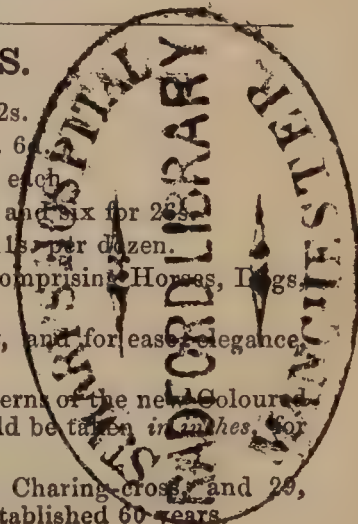 S.
2s.
6d.
each
and six for 26s.
1s. per dozen.
comprising Horses, Dogs,
, and for ease, elegance,
erns of the new Coloured
ld be taken in inches, for
Charing-cross, and 29,
stablished 60 years
ST. MARY'S HOSPITAL
RADFORD LIBRARY
MANCHESTER